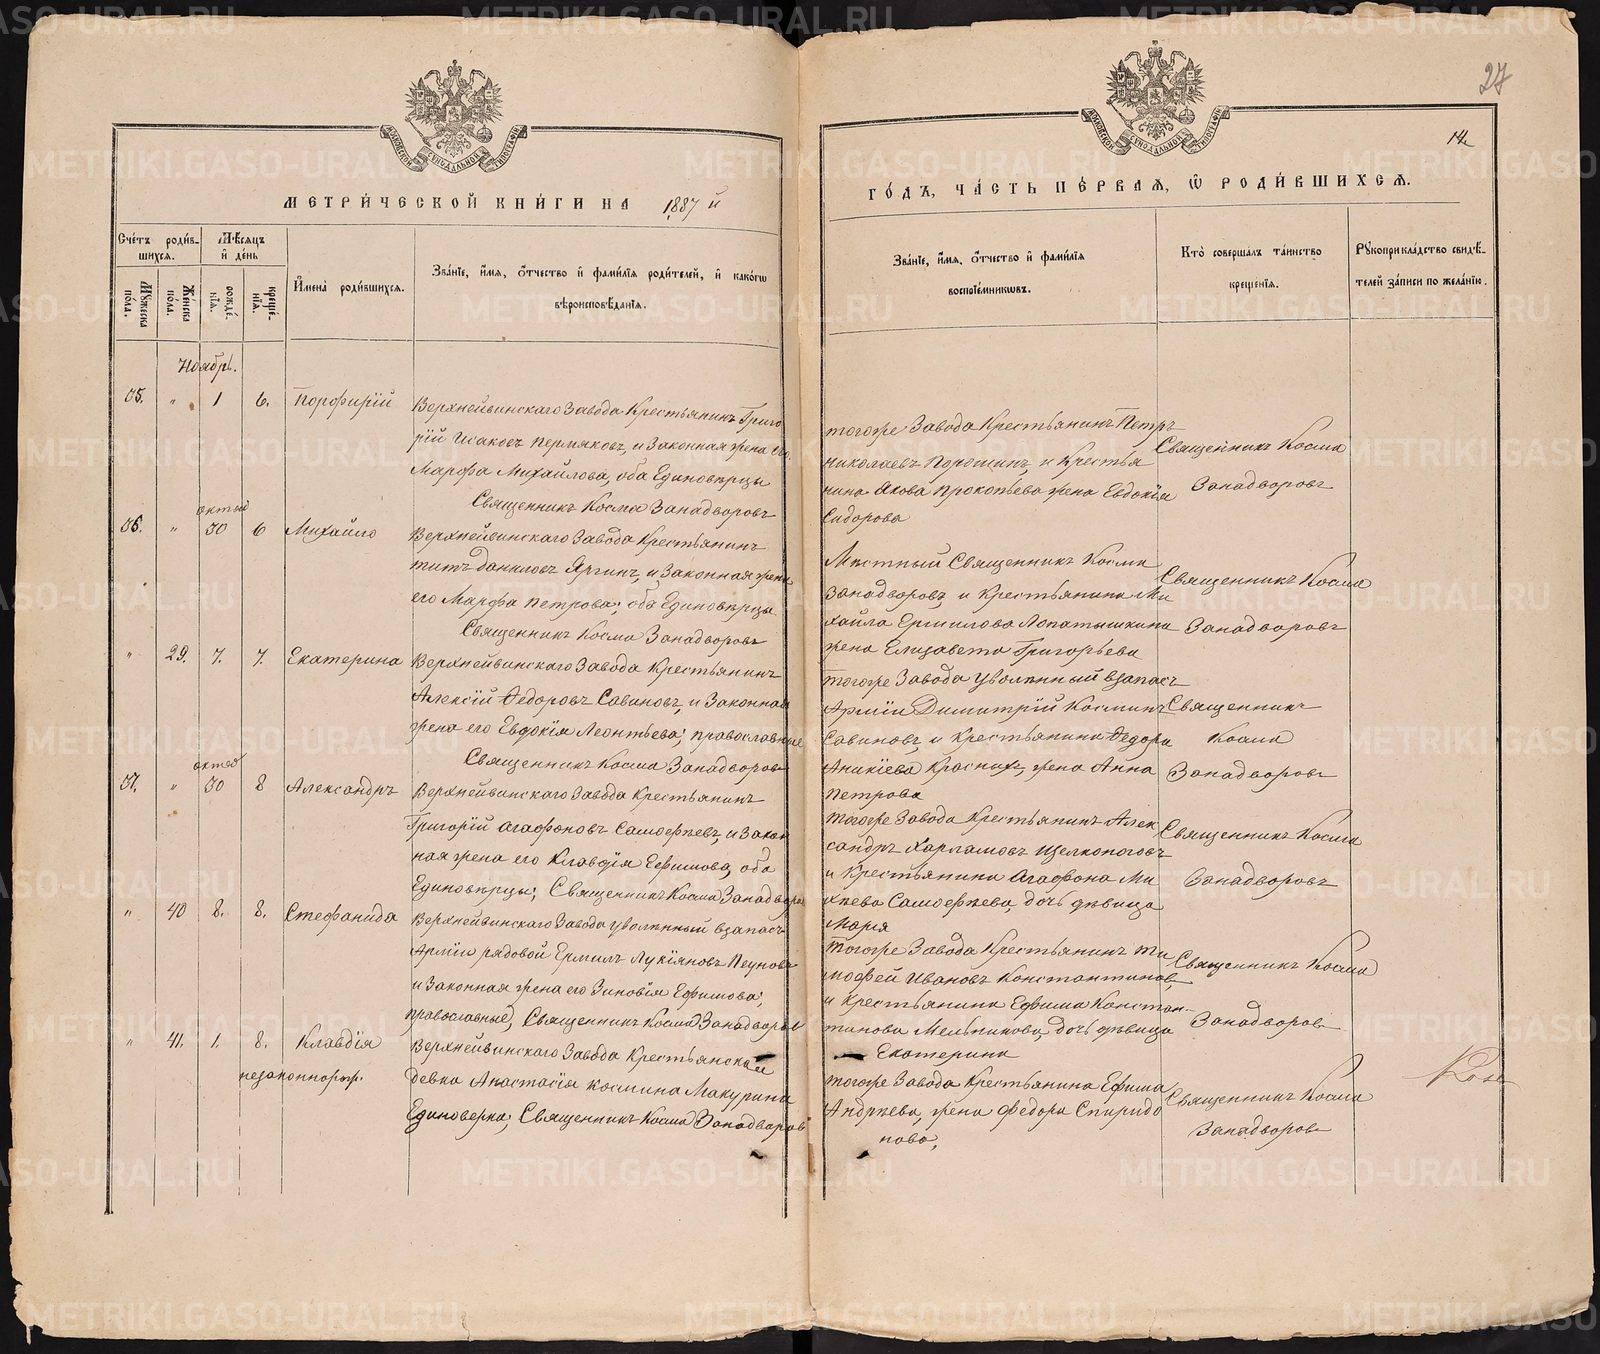 METRIKI.GASO-URAL.RU
27
14
МОСКОВСКОЙ СѴНОДАЛЬНОЙ ТИПОГРАФІИ
МЕТРИ́ЧЕСКОЙ КНИ́ГИ НА 1887 й
ГО́ДЪ, ЧА́СТЬ ПЕ́РВАЯ, Ѡ РОДИ́ВШИХСЯ.
Сче́тъ роди́вшихся.
Мꙋжеска по́ла.
Же́нска по́ла.
Мѣ́сяцъ и́ де́нь
рожде́нїя.
креще́нїя.
И́мена̀ роди́вшихся.
Зва́нїе, и́мя, ѻ́тчество и́ фами́лїя роди́телей, и́ како́гѡ
вѣроисповѣ́данїя.
Зва́нїе, и́мя, ѻ́тчество и́ фами́лїя
воспрїе́мникѡвъ.
Кто̀ соверша́лъ та́инство
креще́нїя.
Рꙋкоприкла́дство свидѣ́телей за́писи по жела́нїю.
Ноябрь.
35. " 1 6. Порфирій
Верхнейвинскаго Завода Крестьянинъ Григо
рій Исаковъ Пермяковъ, и Законная жена его
Марфа Михайлова, оба Единовѣрцы
Священникъ Косма Западворовъ
тогоже Завода Крестьянинъ Петръ
Николаевъ Порошинъ, и Крестья
нина Якова Прокопьева жена Евдокія
Сидорова
Священникъ Косма
Западворовъ
36. " 30 6 Михайло
Верхнейвинскаго Завода Крестьянинъ
Титъ Даниловъ Яргинъ, и Законная жена
его Марфа Петрова; оба Единовѣрцы
Священникъ Косма Западворовъ
Мѣстный Священникъ Косма
Западворовъ, и Крестьянина Ми
хайла Ермилова Лопатышкина
жена Елизавета Григорьева
Священникъ Косма
Западворовъ
" 29. 7. 7. Екатерина
Верхнейвинскаго Завода Крестьянинъ
Алексій Ѳедоровъ Савиновъ, и Законная
жена его Евдокія Леонтьева; православные
Священникъ Косма Западворовъ
тогоже Завода уволенный взапасъ
Арміи Димитрій Косминъ
Савиновъ, и Крестьянина Ѳедора
Аникіева жена Анна
Петрова
Священникъ
Косма
Западворовъ
37. " 30 8 Александръ
Верхнейвинскаго Завода Крестьянинъ
Григорій Агафоновъ Самофѣевъ, и Закон
ная жена его Клавдія Ефимова, оба
Единовѣрцы; Священникъ Косма Западворовъ
тогоже Завода Крестьянинъ Алек
сандръ Харламовъ Щелконоговъ
и Крестьянина Агафона Ми
хѣева Самофѣева, дочь дѣвица
Марія
Священникъ Косма
Западворовъ
" 40 8. 8. Стефанида
Верхнейвинскаго Завода уволенный взапасъ
Арміи рядовой Ермилъ Лукіяновъ Пеуновъ
и Законная жена его Зиновія Ефимова;
православные, Священникъ Косма Западворовъ
тогоже Завода Крестьянинъ Ти
мофей Ивановъ Константиновъ,
и Крестьянина Ефима Констан-
тинова Мельникова, дочь дѣвица
Екатерина
Священникъ Косма
Западворовъ
" 41. 1. 8. Клавдія
незаконнорж.
Верхнейвинскаго Завода Крестьянская
девка Анастасія Космина Макурина
Единоверка; Священникъ Косма Западворовъ
тогоже Завода Крестьянина Ефима
Андрѣева, жена Федора Спиридо
нова,
Священникъ Косма
Западворовъ